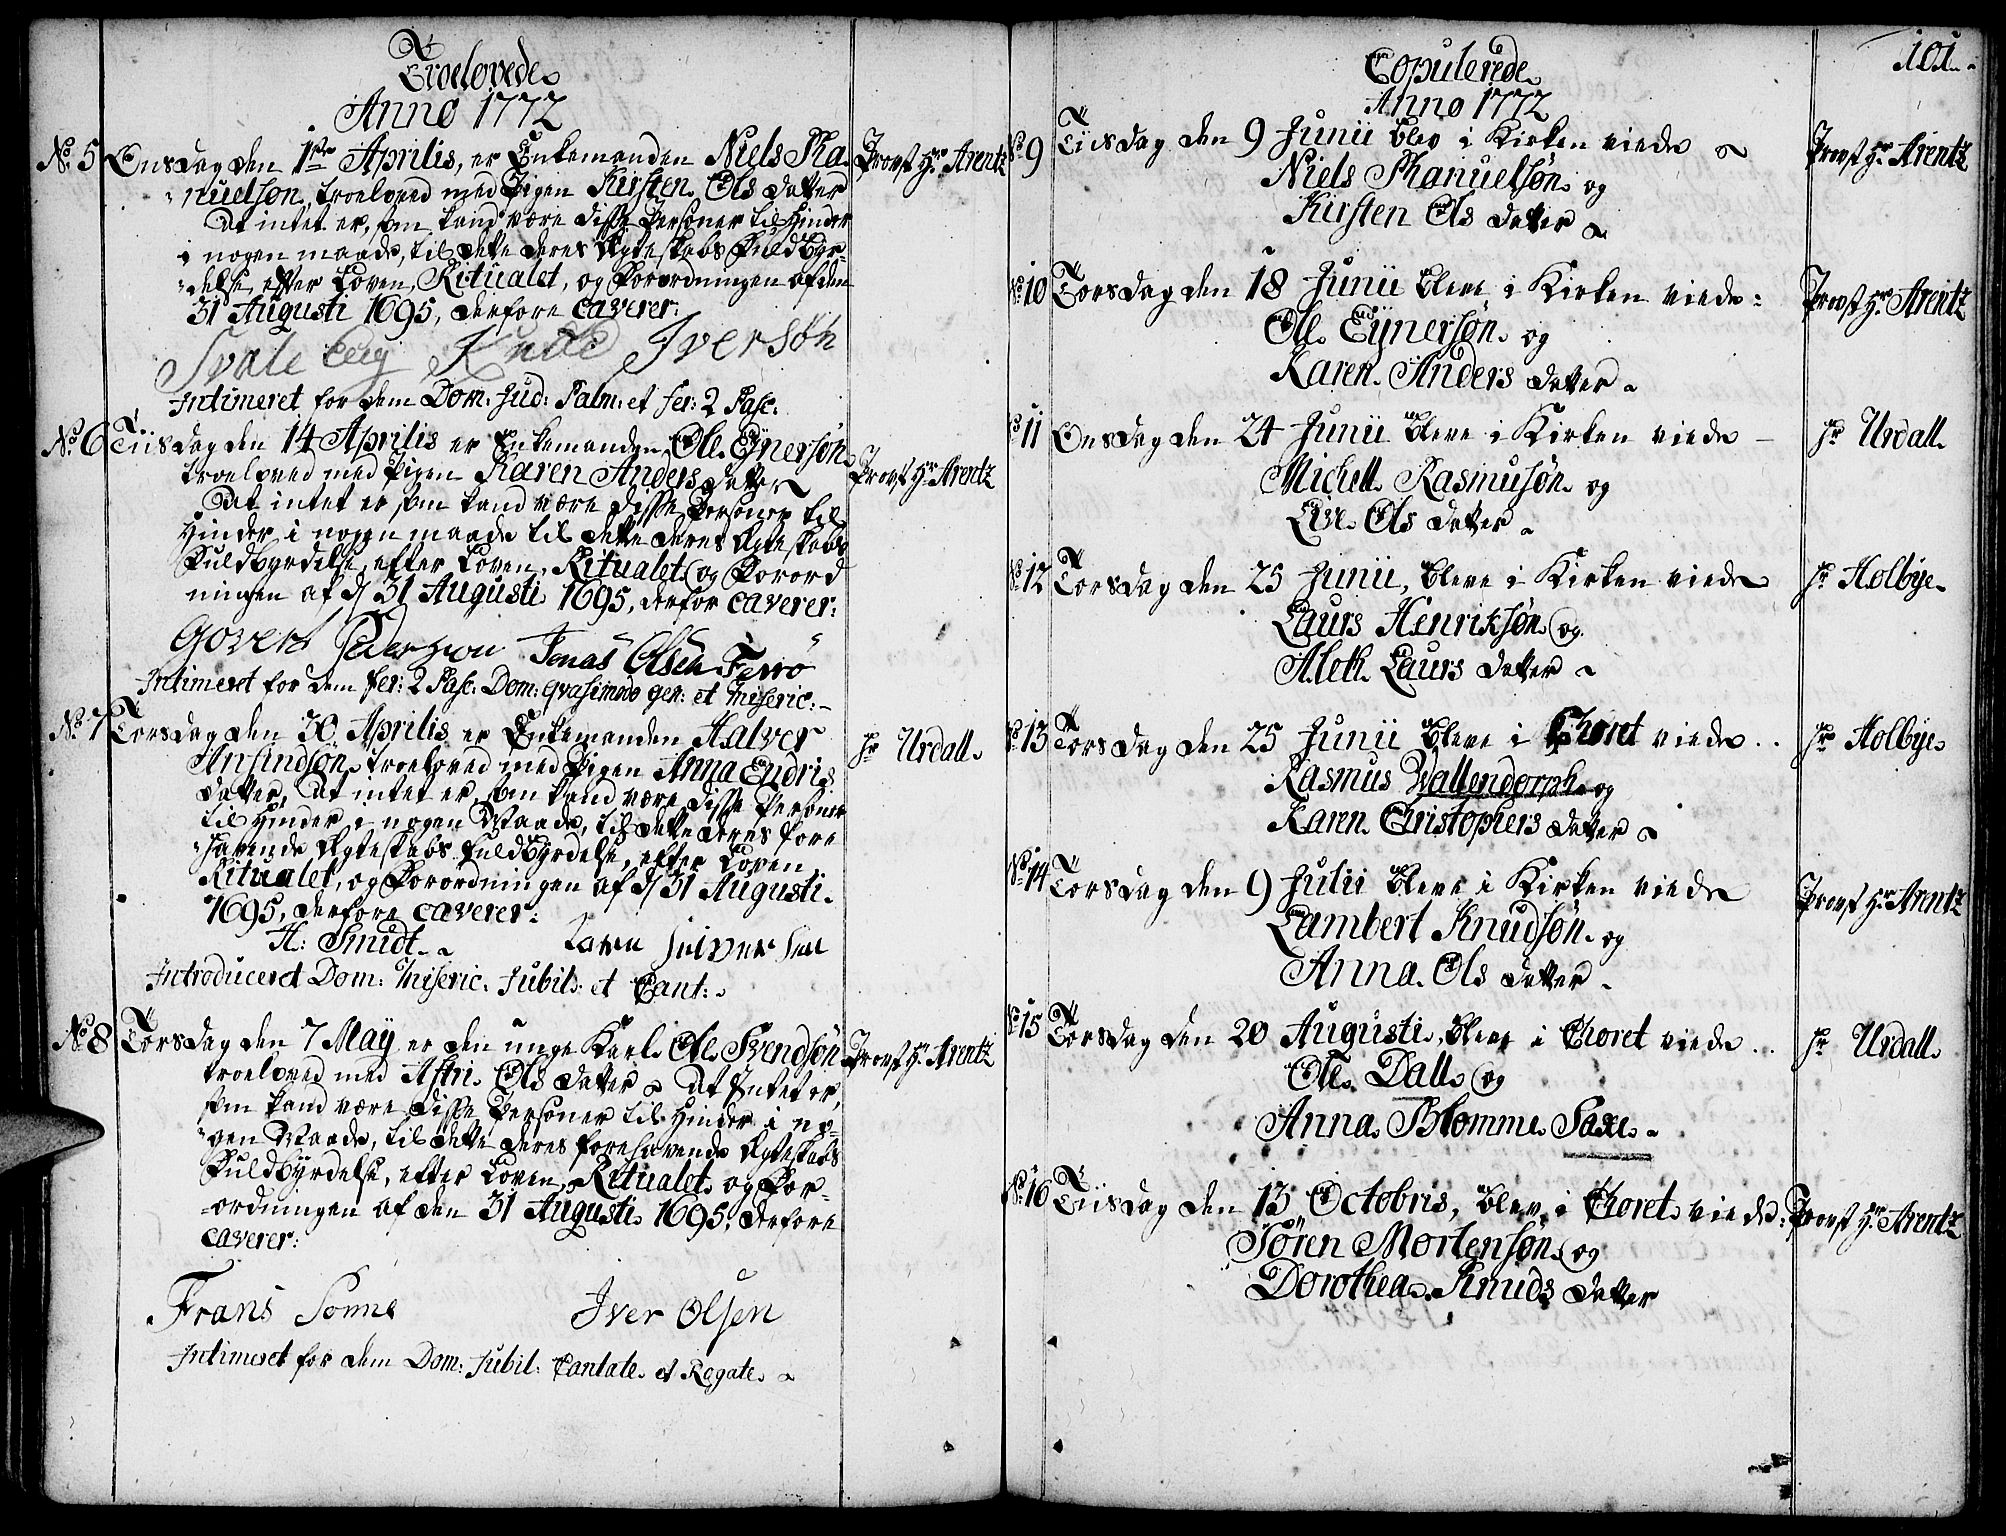 Troelovede
Anno 1772
No. 5 Onsdag den 1ste Aprilis, er Enkemanden Niels Ma= Provst Hr. Arentz
nuelsøn, troeloved med Pigen Kirsten Ols datter
At intet er, som kand være disse Personer til Hinder
i nogen maade, til dette deres Ægteskabs Fuldbyr=
=delse, efter Loven, Ritualet, og Forordningen af den
31 Augusti 1695, derfore caverer:
Knud Iversøn
Intimeret for dem Dom: Jud: Palm: et fer: 2 Pasc:
No. 6 Tiisdag den 14 Aprilis er Enkemanden Ole Eynersøn
troeloved med Pigen Karen Anders datter Provst Hr. Arentz
At intet er som kand være disse Personer til
Hinder i nogen maade til dette deres Ægteskabs
Fuldbyrdelse, efter Loven, Ritualet og Forord
ningen af d 31 Augusti 1695, derfor caverer:
Govert Pedersen Jonas Olsen Ferrø
Intimeret for dem fer: 2 Pasc: Dom: qvasimodo gen: et Miseric:
No. 7 Torsdag den 30 Aprilis er Enkemanden Halver Hr Urdall
Ansindsøn troeloved med Pigen Anna Endris
datter, At intet er, som kand være disse Personer
til Hinder i nogen Maade, til dette deres fore
=havende Ægteskabs Fuldbyrdelse, efter Loven
Ritualet, og Forordningen af d 31 Augusti
1695, derfore caverer:
H: Smidt Iversen
Introduceret Dom: Miseric: Jubil: et Cant:
No. 8 Torsdag den 7 May er den unge Karl Ole Svendsøn Provst Hr. Arentz
troeloved med Astri Ols datter At Intet er,
som kand være disse Personer til Hinder i no=
=gen Maade, til dette deres forehavende Ægteskabs
Fuldbyrdelse, efter Loven, Ritualet og For=
=ordningen af den 31 Augusti 1695, derfore
caverer:
Frans Sonne Iver Olsen
Intimeret for dem Dom: Jubil: Cantate et Rogate
101
Copulerede
Anno 1772
No 9 Tiisdag den 9 Junii blev i Kirken viede Provst Hr. Arentz
Niels Manuelsøn og
Kirsten Ols datter
No 10 Torsdag den 18 Junii bleve i Kirken viede: Provst Hr. Arentz
Ole Eynersøn og
Karen Anders datter
No 11 Onsdag den 24 Junii bleve i Kirken viede Hr Urdall
Michell Rasmusøn og
Live Ols datter
No 12 Torsdag den 25 Junii, bleve i Kirken viede Hr Holbye
Laurs Henriksøn og
Aleth Laurs datter
No 13 Torsdag den 25 Junii bleve i Choret viede Hr Holbye
Rasmus Wallendorph og
Karen Christophers datter
No 14 Torsdag den 9 Julii bleve i Kirken viede Provst Hr. Arentz
Lambert Knudsøn og
Anna Ols datter
No 15 Torsdag den 20 Augusti, bleve i Choret viede Hr Urdall
Ole Dall og
Anna Blomme Saxe
No. 16 Tiisdag den 13 Octobris, blev i Choret viede: Provst Hr. Arentz
Søren Mortensøn og
Dorothea Knuds datter